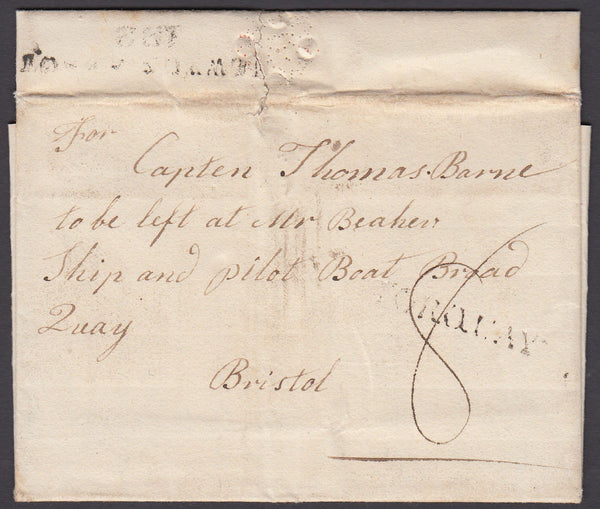 For
Capten Thomas Barne
to be left at Mr Beaker
Ship and pilot Boat Broad
Quay
Bristol
8